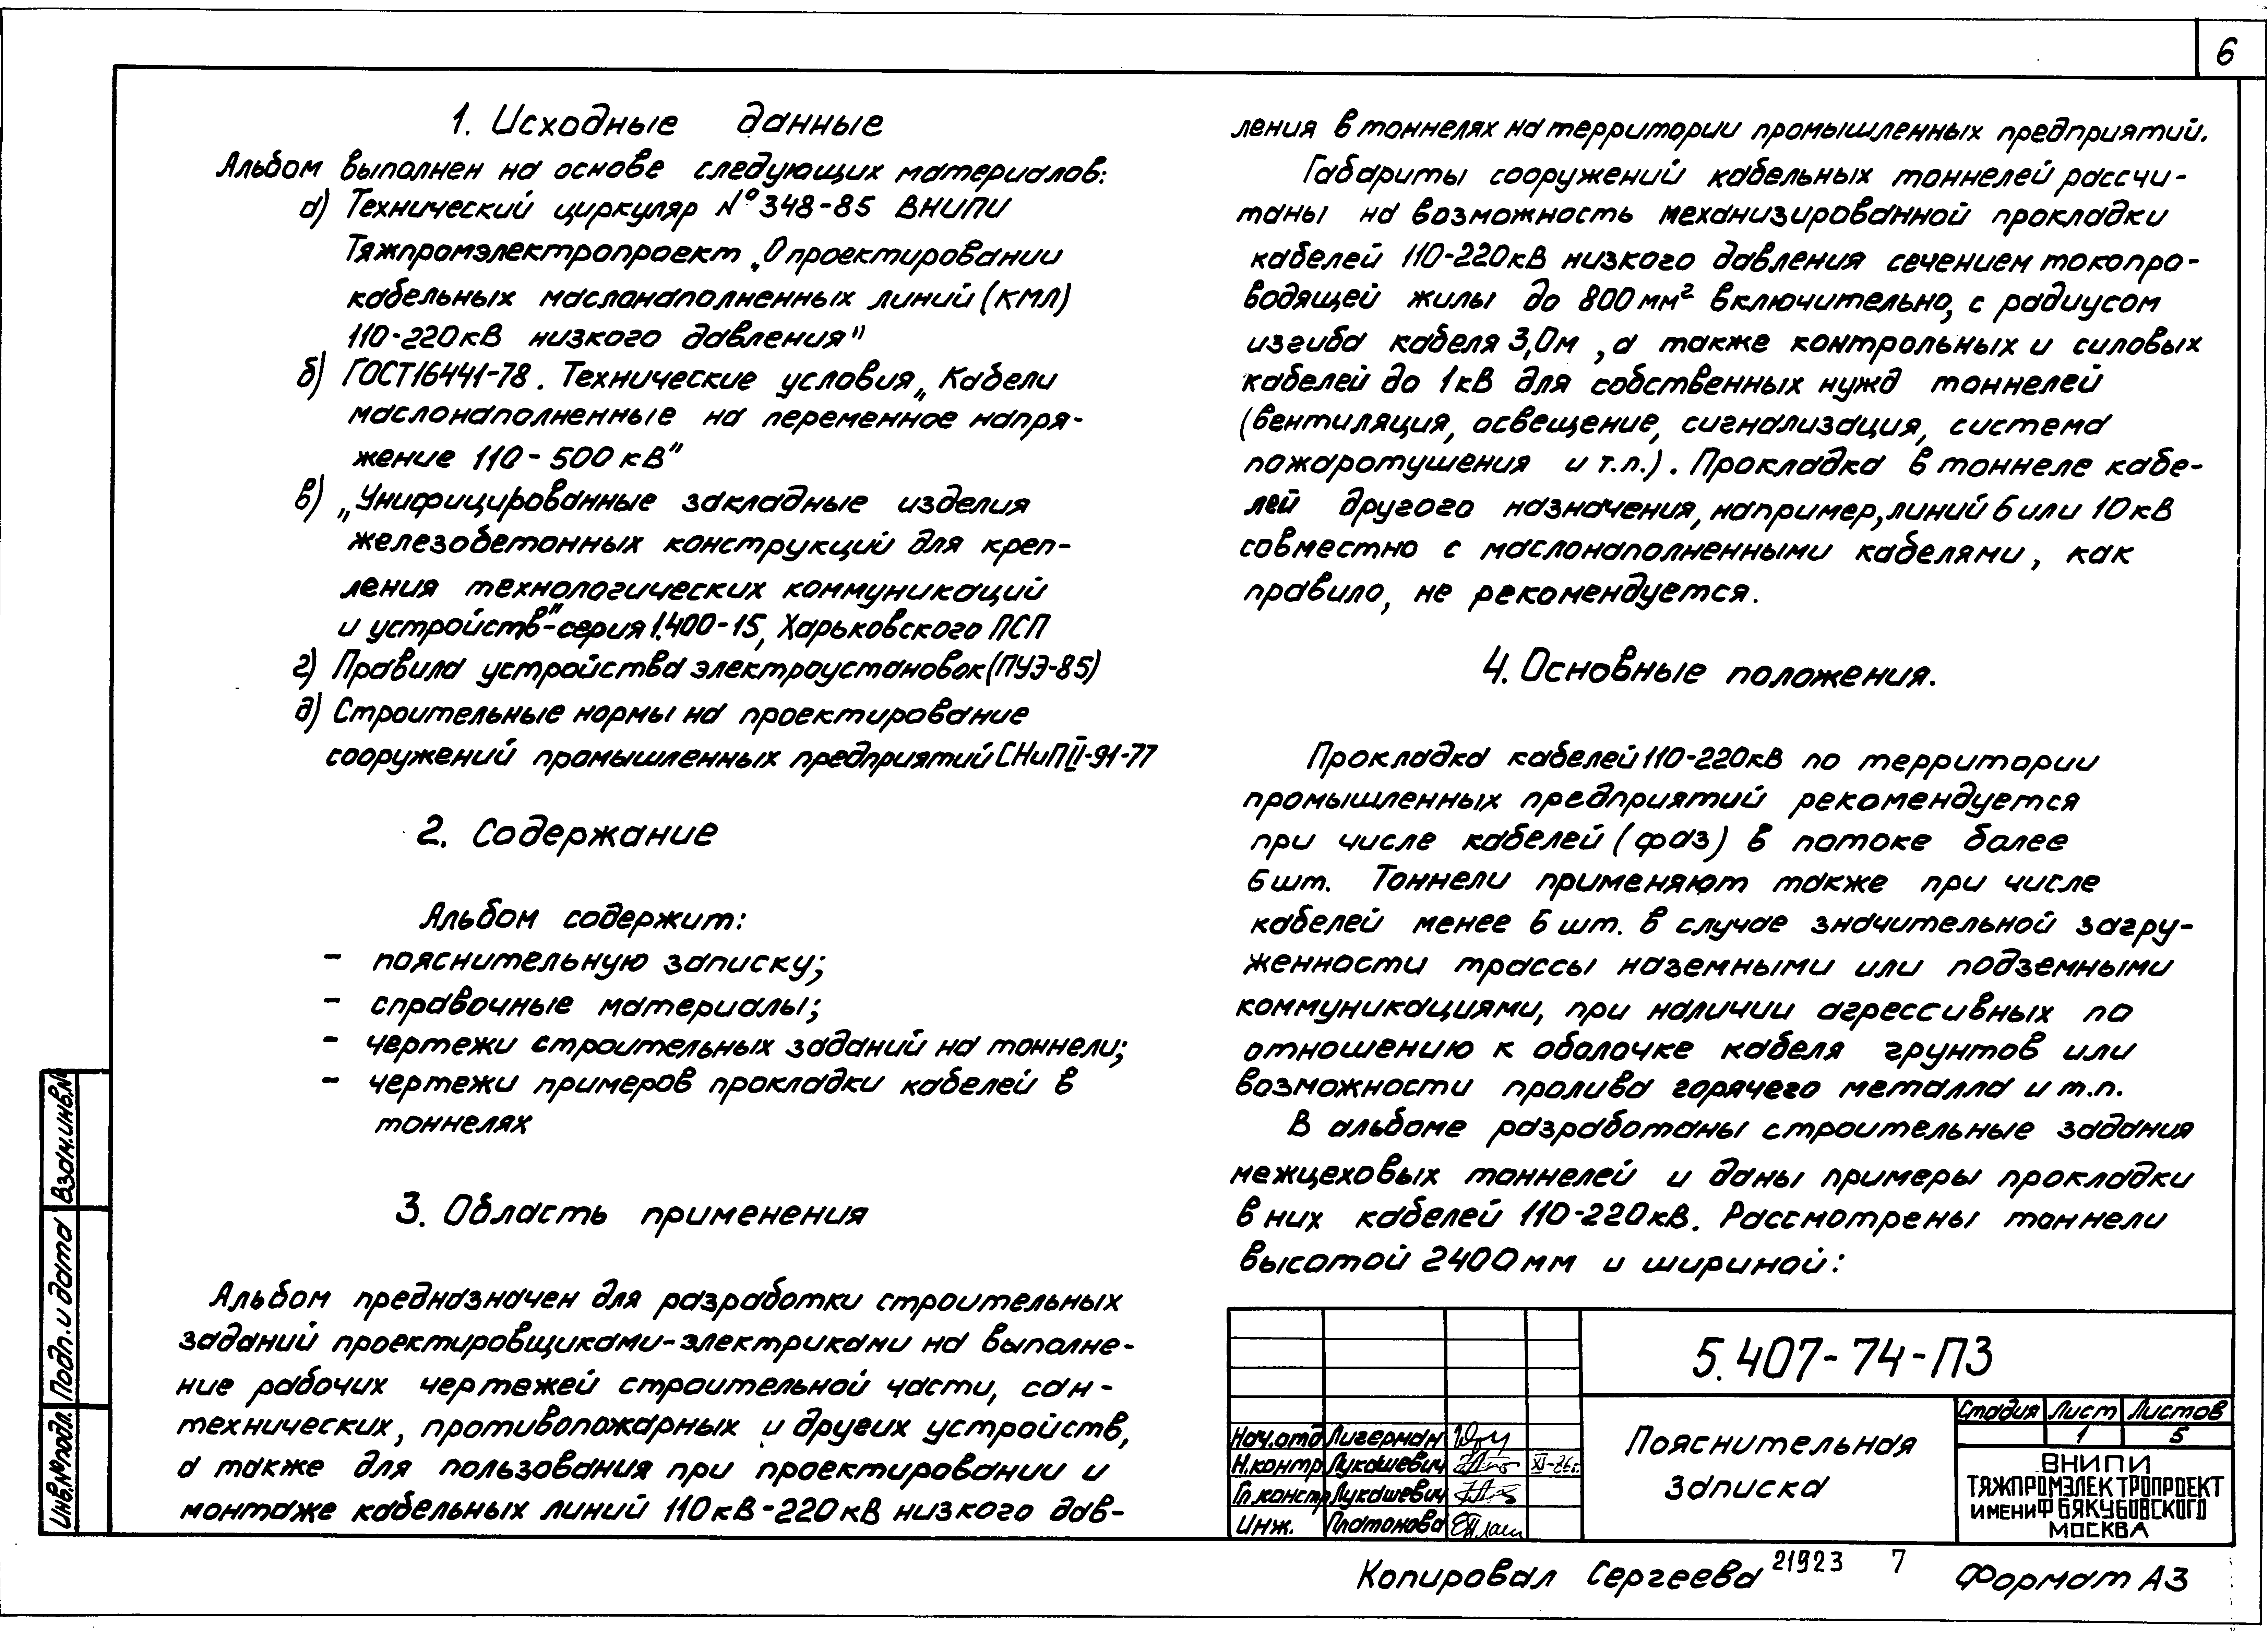 6
1. Исходные данные
Альбом выполнен на основе следующих материалов:
а) Технический циркуляр №348-85 ВНИПИ
Тяжпромэлектропроект „О проектировании
кабельных маслонаполненных линий (КМЛ)
110-220кВ низкого давления"
б) ГОСТ16441-78. Технические условия „Кабели
маслонаполненные на переменное напря-
жение 110-500 кВ"
в) „Унифицированные закладные изделия
железобетонных конструкций для креп-
ления технологических коммуникаций
и устройств"-серия 1.400-15, Харьковского ПСП
г) Правила устройства электроустановок (ПУЭ-85)
д) Строительные нормы на проектирование
сооружений промышленных предприятий СНиП II-91-77
2. Содержание
Альбом содержит:
- пояснительную записку;
- справочные материалы;
- чертежи строительных заданий на тоннели;
- чертежи примеров прокладки кабелей в
тоннелях
3. Область применения
Альбом предназначен для разработки строительных
заданий проектировщиками-электриками на выполне-
ние рабочих чертежей строительной части, сан-
технических, противопожарных и других устройств,
а также для пользования при проектировании и
монтаже кабельных линий 110кВ-220кВ низкого дав-
ления в тоннелях на территории промышленных предприятий.
Габариты сооружений кабельных тоннелей рассчи-
таны на возможность механизированной прокладки
кабелей 110-220кВ низкого давления сечением токопро-
водящей жилы до 800мм² включительно, с радиусом
изгиба кабеля 3,0м, а также контрольных и силовых
кабелей до 1кВ для собственных нужд тоннелей
(вентиляция, освещение, сигнализация, система
пожаротушения и т.п.). Прокладка в тоннеле кабе-
лей другого назначения, например, линий 6 или 10кВ
совместно с маслонаполненными кабелями, как
правило, не рекомендуется.
4. Основные положения.
Прокладка кабелей 110-220кВ по территории
промышленных предприятий рекомендуется
при числе кабелей (фаз) в потоке более
6шт. Тоннели применяют также при числе
кабелей менее 6 шт. в случае значительной загру-
женности трассы наземными или подземными
коммуникациями, при наличии агрессивных по
отношению к оболочке кабеля грунтов или
возможности пролива горячего металла и т.п.
В альбоме разработаны строительные задания
межцеховых тоннелей и даны примеры прокладки
в них кабелей 110-220кВ. Рассмотрены тоннели
высотой 2400мм и шириной:
Взам.инв.№
Подп. и дата
Инв.№подл.
5.407-74-ПЗ
Нач.отд Лигерман
Н.контр Лукашевич XI-86г.
Гл.констр Лукашевич
Инж. Платонова
Пояснительная
записка
Стадия Лист Листов
1 5
ВНИПИ
ТЯЖПРОМЭЛЕКТРОПРОЕКТ
ИМЕНИ Ф БЯКУБОВСКОГО
МОСКВА
Копировал Сергеева 21923 7 Формат А3